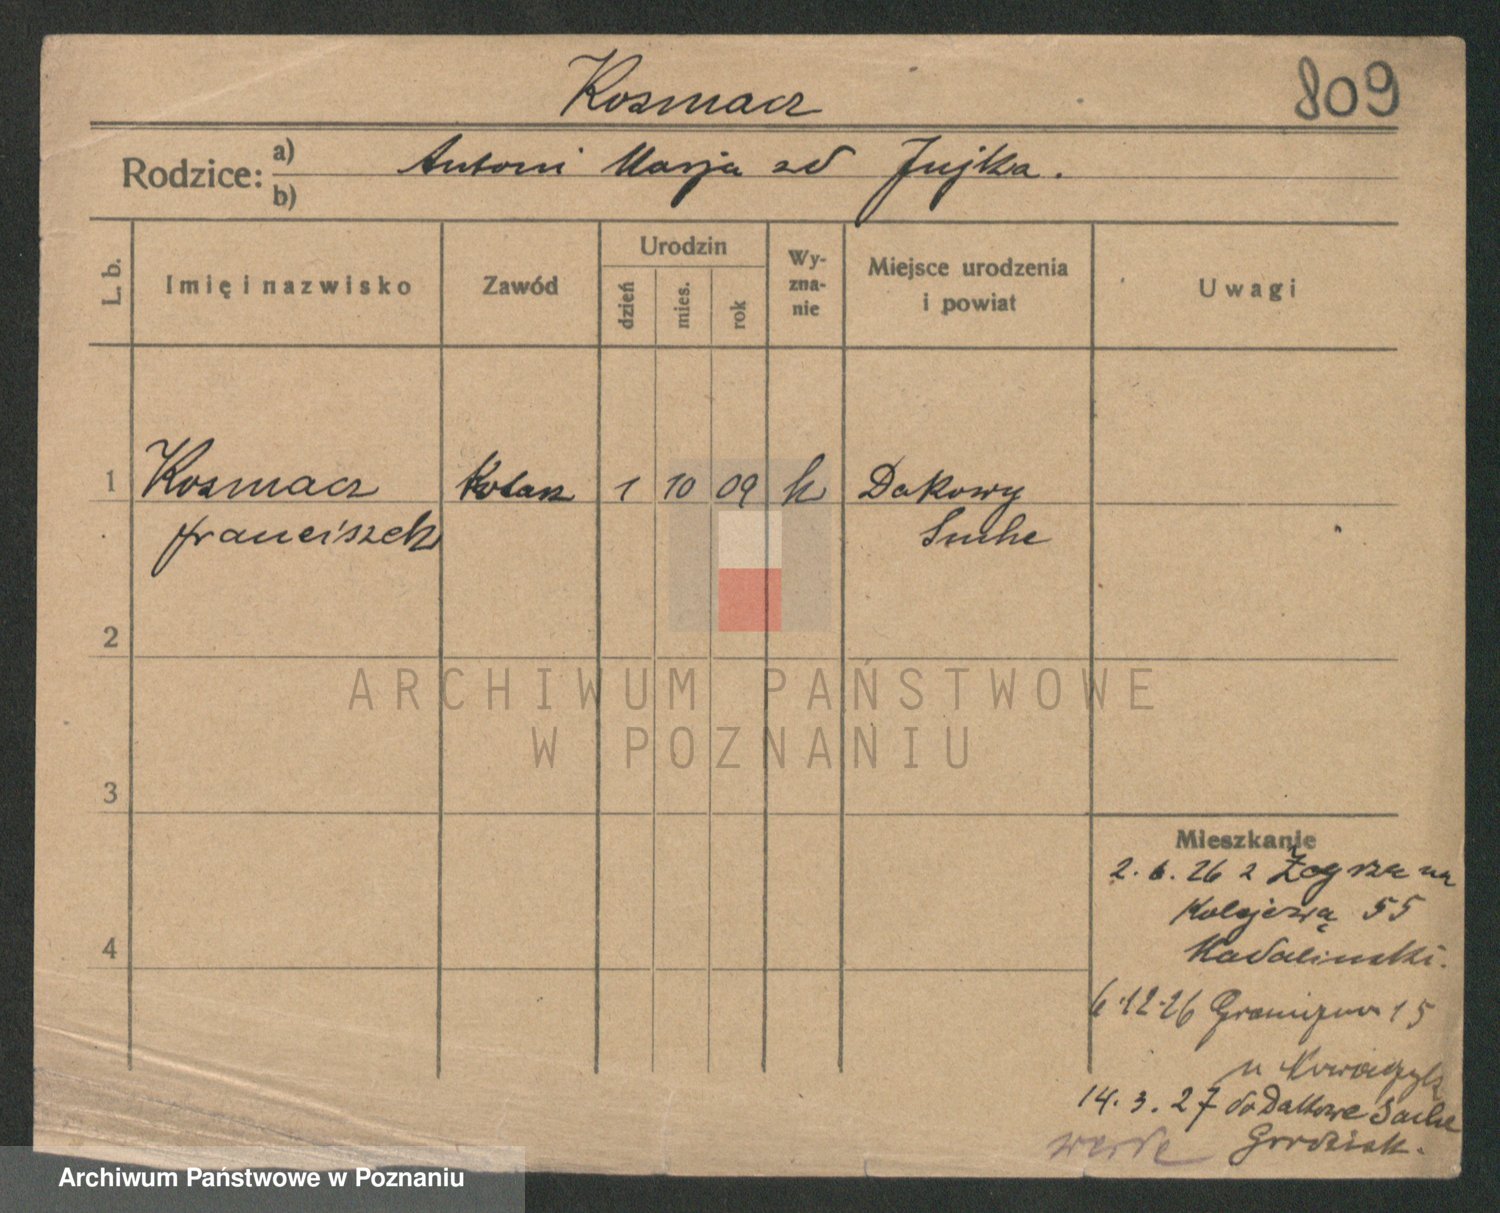 Kosmacz
809
Rodzice: a) Antoni Marja zd Jujka.
b)
L. b.
Imię i nazwisko
Zawód
Urodzin
dzień
mies.
rok
Wy-
zna-
nie
Miejsce urodzenia
i powiat
Uwagi
1 Kosmacz 1 10 09 k Dakowy
Franciszek Suche
2
ARCHIWUM PAŃSTWOWE
W POZNANIU
3
4
Mieszkanie
2. 6. 26 z
Kolejową 55
6.12.26 15
u
14. 3. 27 do Dakowe Suche
Grodzisk.
Archiwum Państwowe w Poznaniu